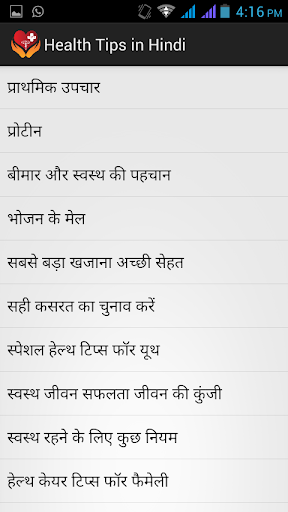 4:16 PM
Health Tips in Hindi
प्राथमिक उपचार
प्रोटीन
बीमार और स्वस्थ की पहचान
भोजन के मेल
सबसे बड़ा खजाना अच्छी सेहत
सही कसरत का चुनाव करें
स्पेशल हेल्थ टिप्स फॉर यूथ
स्वस्थ जीवन सफलता जीवन की कुंजी
स्वस्थ रहने के लिए कुछ नियम
हेल्थ केयर टिप्स फॉर फैमेली